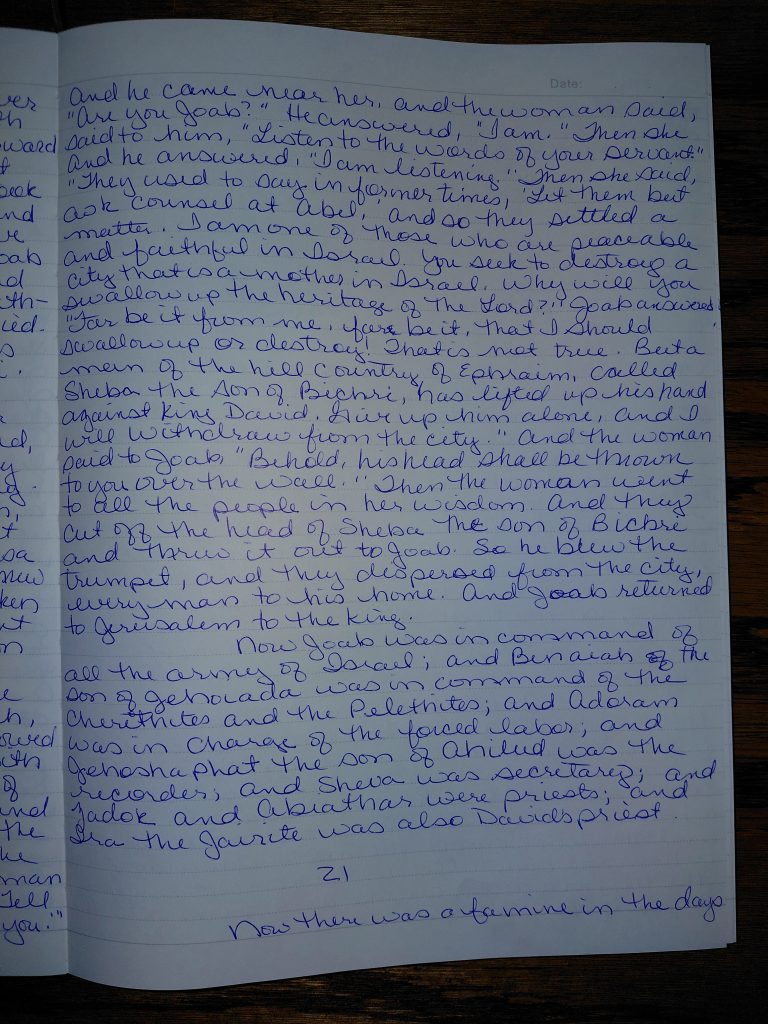 Date:
And he came near her, and the woman said,
"Are you Joab?" He answered, "I am." Then she
said to him, "Listen to the words of your servant."
And he answered, "I am listening." Then she said,
"They used to say in former times, 'Let them but
ask counsel at Abel,' and so they settled a
matter. I am one of those who are peaceable
and faithful in Israel. You seek to destroy a
city that is a mother in Israel. Why will you
swallow up the heritage of the Lord?" Joab answered
"Far be it from me, far be it, that I should
swallow up or destroy! That is not true. But a
man of the hill country of Ephraim, called
Sheba the son of Bichri, has lifted up his hand
against King David. Give up him alone, and I
will withdraw from the city." And the woman
said to Joab, "Behold, his head shall be thrown
to you over the wall." Then the woman went
to all the people in her wisdom. And they
cut off the head of Sheba the son of Bichri
and threw it out to Joab. So he blew the
trumpet, and they dispersed from the city,
every man to his home. And Joab returned
to Jerusalem to the king.
Now Joab was in command of
all the army of Israel; and Benaiah of the
son of Jehoiada was in command of the
Cherithites and the Pelethites; and Adoram
was in charge of the forced labor; and
Jehoshaphat the son of Ahilud was the
recorder; and Sheva was secretary; and
Zadok and Abiathar were priests; and
Ira the Jairite was also Davids priest.
21
Now there was a famine in the days